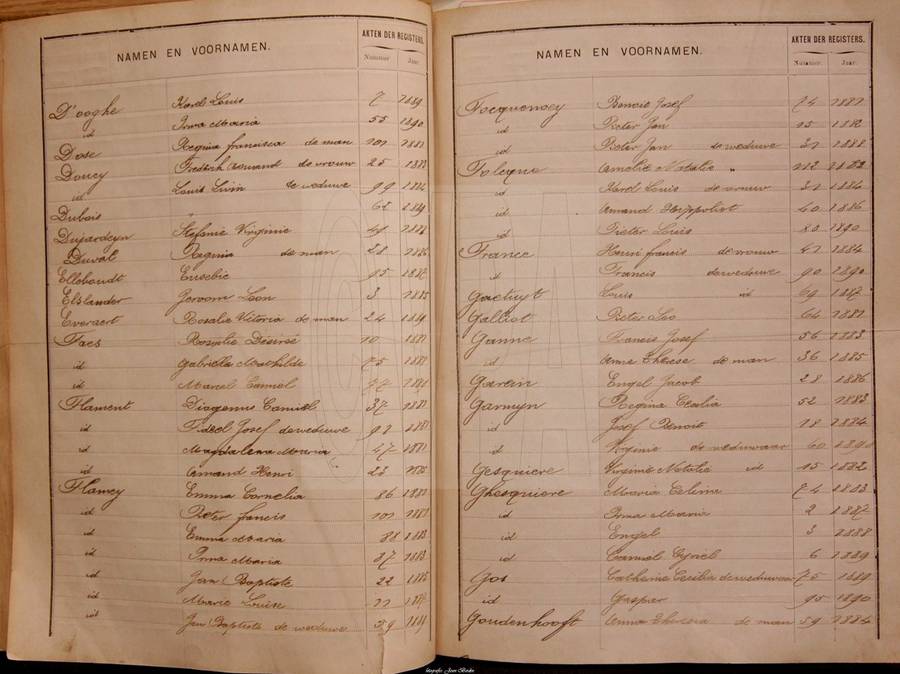 NAMEN EN VOORNAMEN. AKTEN DER REGISTERS.
Nummer Jaar.
D'ooghe Karel Louis 7 1889
id Irma Maria 55 1890
Dose Regina francisca de man 101 1881
Doucy Fredrik Amand de vrouw 25 1883
id Louis Livin de weduwe 99 1884
Dubois " 62 1884
Dujardeyn Stefanie Virginie 48 1888
Duval Regina de man 28 1886
Elleboudt Eusebie 95 1887
Elslander Jeroom Leon 3 1885
Everaert Rosalie Vitoria de man 24 1889
Faes Rosalie Désiré 10 1881
id Gabrielle Mathilde 75 1881
id Marcel Camiel 77 1881
Flament Diogenus Camiel 37 1881
id Fideel Josef de weduwe 92 1881
id Magdalena Maria 47 1881
id Amand Henri 23 1886
Flamey Emma Cornelia 86 1881
id Pieter francis 101 1881
id Emma Maria 88 1883
id Irma Maria 37 1883
id Jan Baptiste 22 1885
id Marie Louise 11 1887
id Jan Baptiste de weduwe 59 1889
NAMEN EN VOORNAMEN. AKTEN DER REGISTERS.
Nummer. Jaar.
Focquenoey Benoit Josef 74 1881
id Pieter Jan 15 1882
id Pieter Jan de weduwe 31 1882
Foleque Amelie Natalie " 112 1882
id Karel Louis de vrouw 31 1884
id Amand Hippoliet 40 1886
id Pieter Louis 80 1890
France Henri francis de vrouw 41 1884
id Francis de weduwe 90 1890
Gactuyt Louis id 69 1887
Galliot Pieter Leo 64 1881
Ganne Francis Josef 56 1883
id Anna Therese de man 36 1885
Garein Engel Jacob 28 1886
Garmyn Regina Cecilia 52 1883
id Josef Benoit 18 1884
id Virginie de weduwaar 60 1890
Gesquiere Virginie Natalie id 15 1882
Ghesquiere Maria Celina 74 1883
id Irma Maria 2 1887
id Engel 3 1888
id Camiel Cyriel 6 1889
Gos Catherine Cecilia de weduwaar 75 1889
id Gaspar 95 1890
Goudenhooft Anna Theresia de man 59 1884